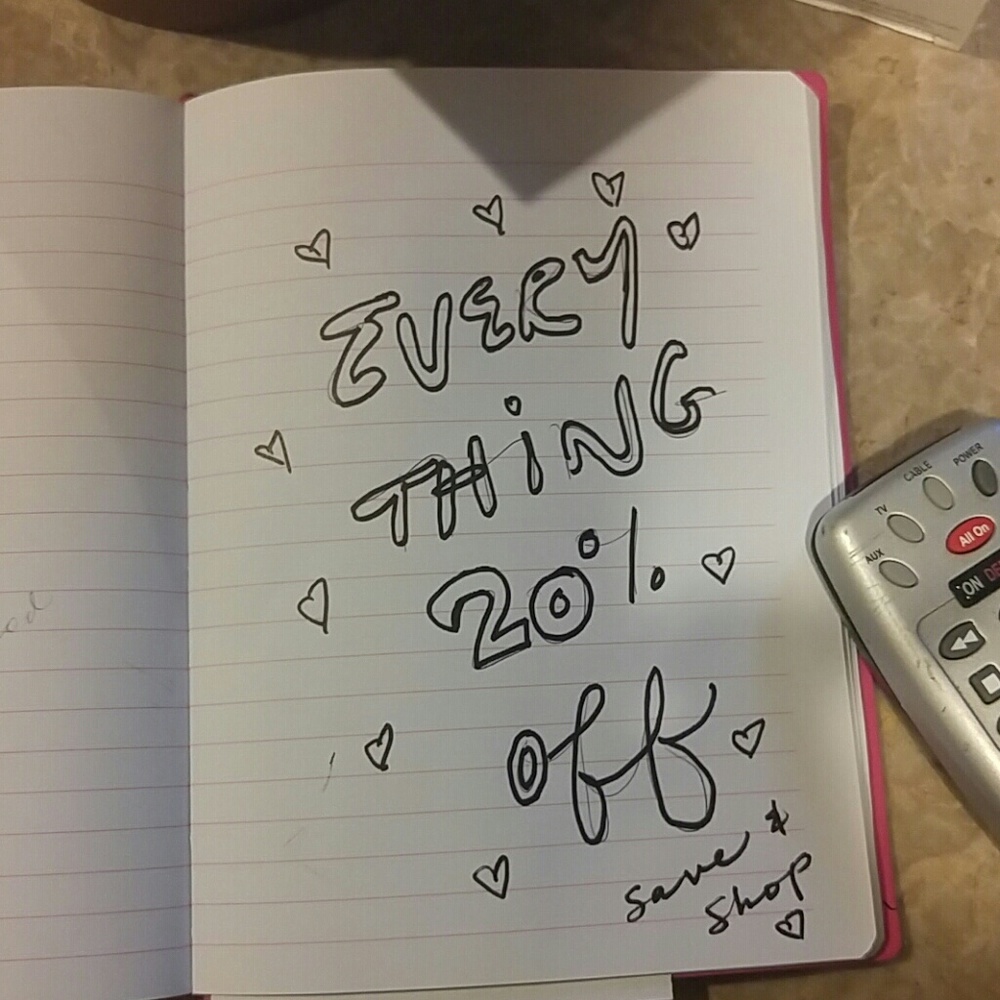 EVERY
THING
20%
off
save &
shop
CABLE
POWER
TV
All On
AUX
ON